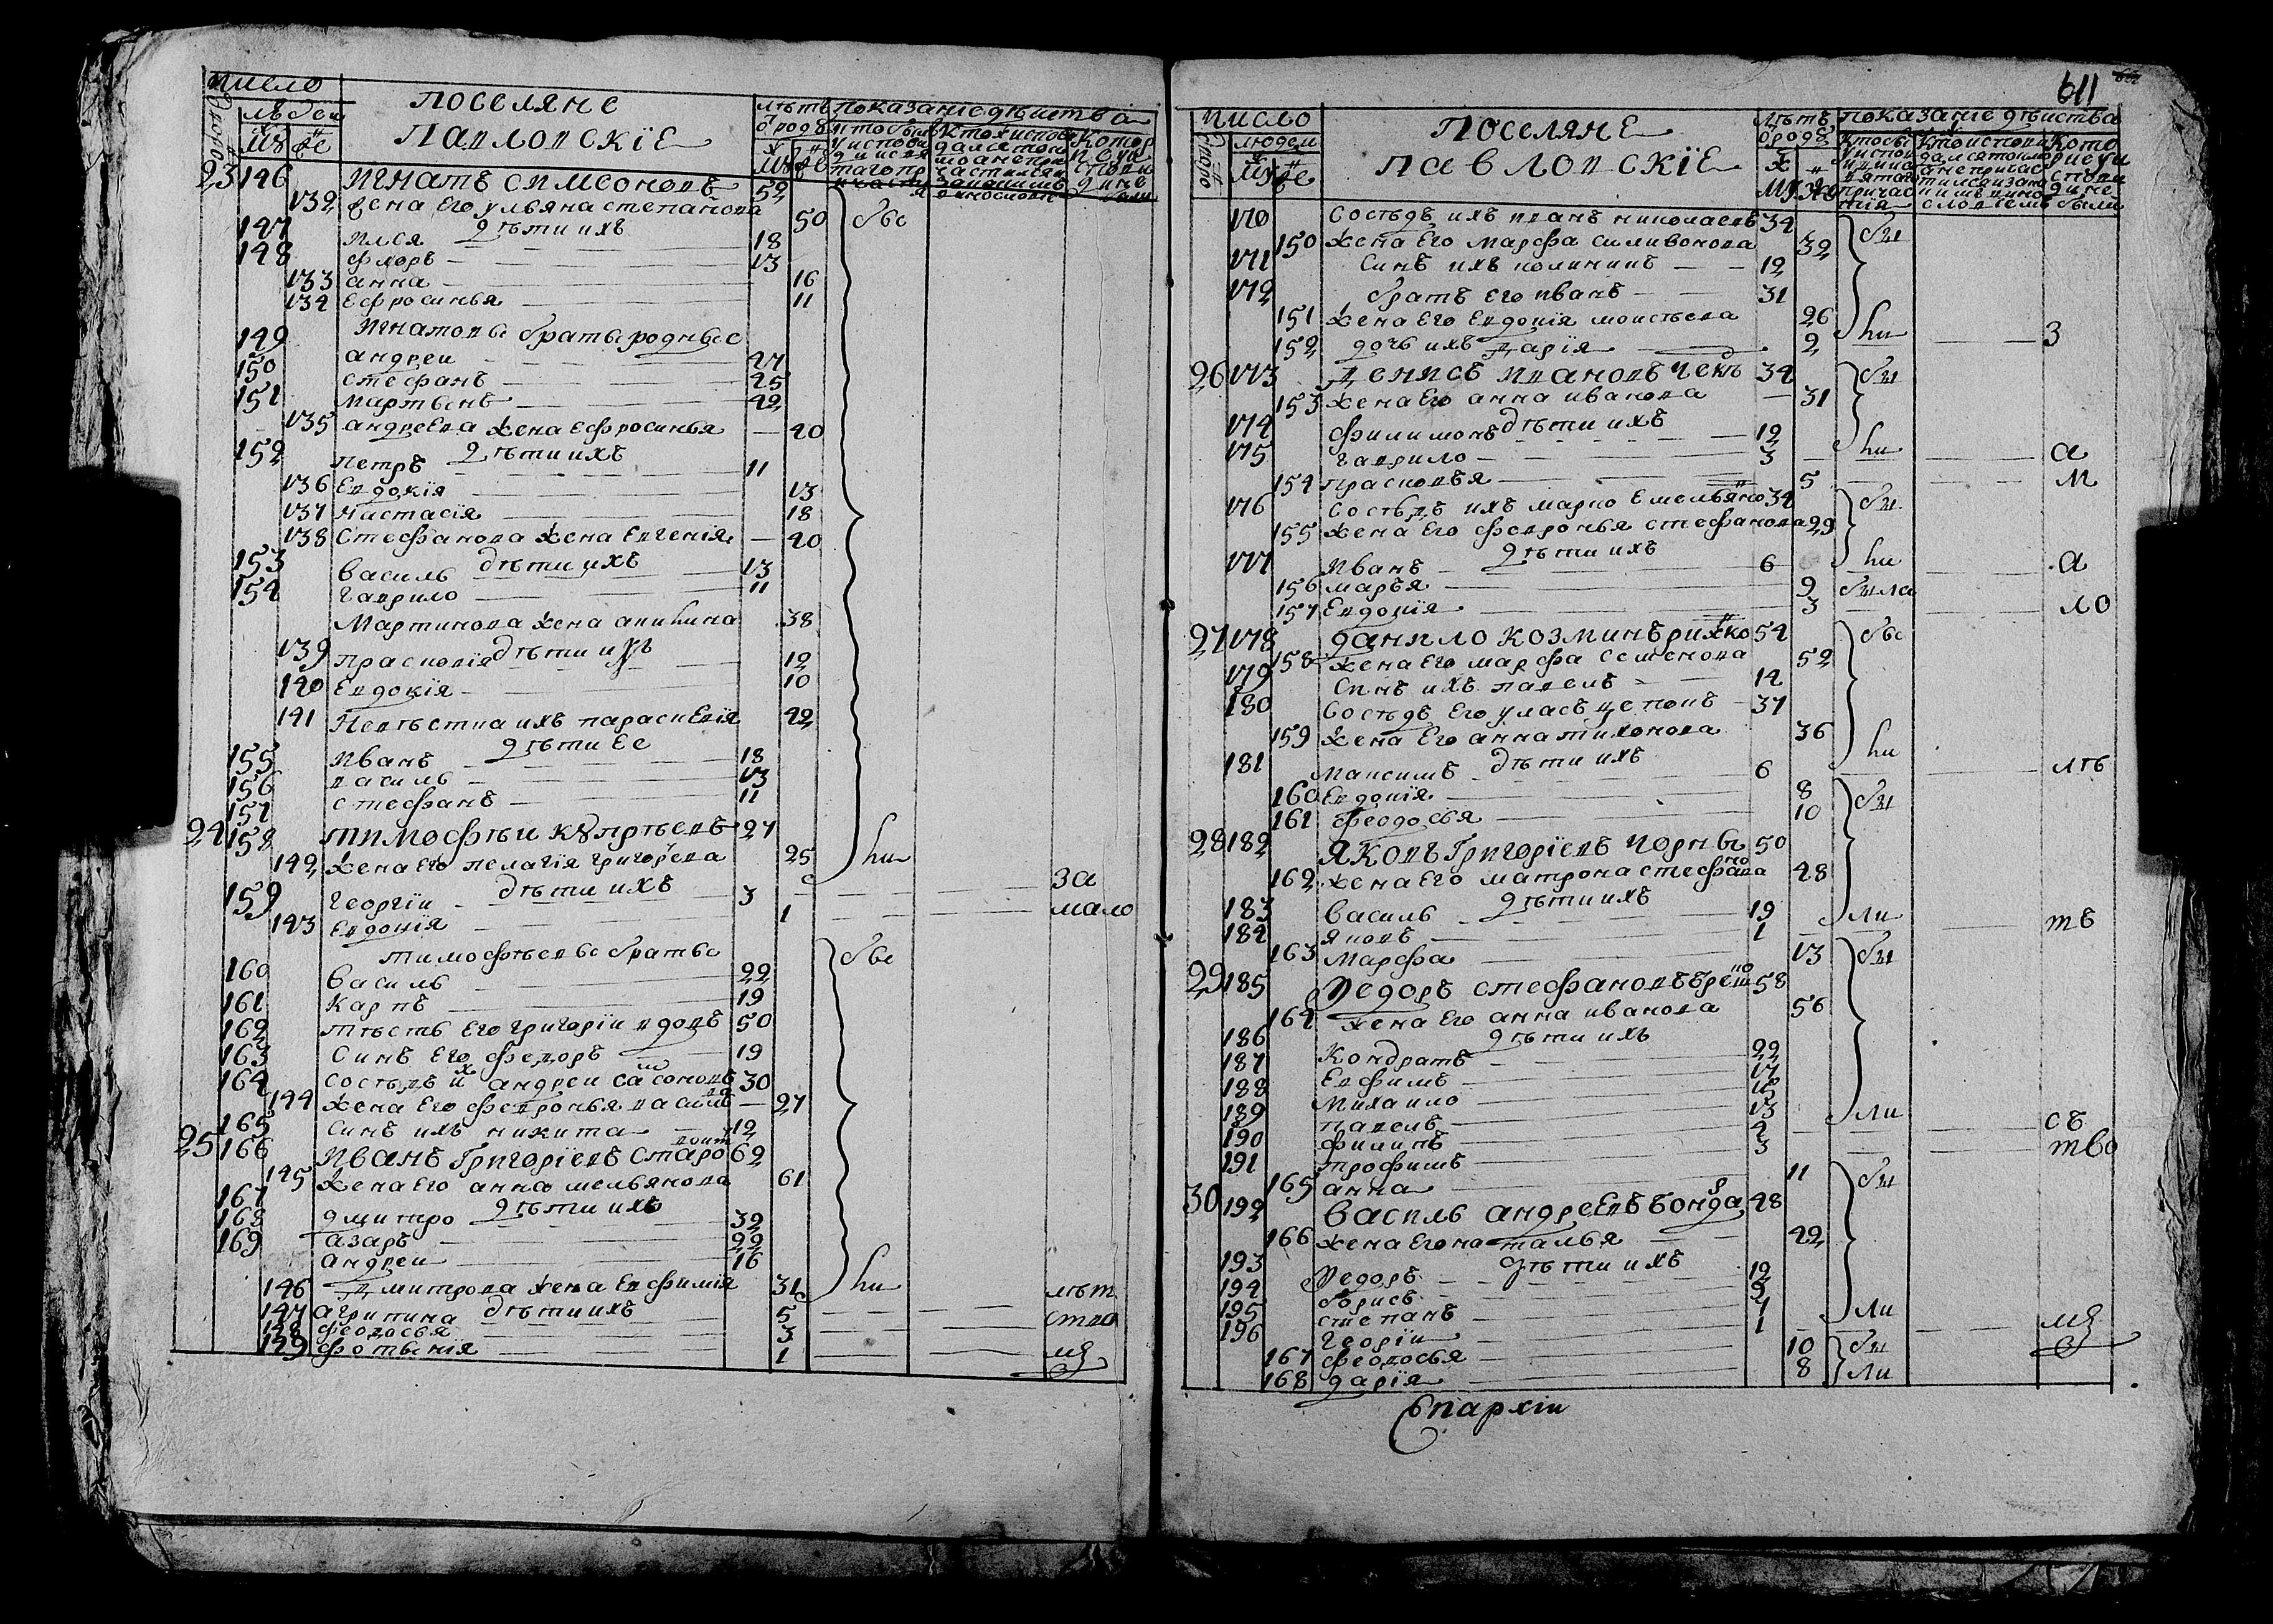 число
дворо
людеи
му же
поселяне
павловскїе
лѣтъ
ѿ роду
му же
показанїе дѣиства
23 146 игнатъ симеоновъ 52
132 жена его ульяна степанова 50 бы
дѣти ихъ
147 илья 18
148 флоръ 13
133 анна 16
134 ефросинья 11
игнатовы братья родные
149 андреи 47
150 стефанъ 45
151 мартынъ 42
135 андреева жена ефросинья 40
дѣти ихъ
152 петръ 11
136 евдокїя 13
137 настасїя 18
138 стефанова жена евгенїя 40
дѣти ихъ
153 василь 13
154 гаврило 11
мартинова жена акилина 38
дѣти ихъ
139 прасковїя 12
140 евдокїя 10
141 невѣстка ихъ параскевїя 42
дѣти ее
155 иванъ 18
156 василь 13
157 стефанъ 11
24 158 тимофѣи купрѣевъ 27
142 жена его пелагїя григорева 25 ли
за
дѣти ихъ
159 георгїи 3
мало
143 евдокїя 1
тимофѣевы братья
бы
160 василь 22
161 карпъ 19
162 тѣсть его григорїи вдовъ 50
163 синъ его федоръ 19
164 сосѣдъ их андреи самсоновъ 30
144 жена его февронья василева 27
165 синъ ихъ никита 12
25 166 иванъ григорїевъ старо 62
145 жена его анна мельянова 61
дѣти ихъ
167 дмитро 32
168 азаръ 22
169 андреи 16
146 дмитрова жена евфимїя 31 ли лѣт
дѣти ихъ
147 агрипина 5 ство
148 феодосья 3
149 фотынїя 1 мъ
611
число
дворо
людеи
му же
поселяне
павловскїе
лѣтъ
ѿ роду
му же
показанїе дѣиства
170 сосѣдъ ихъ иванъ николаевъ 34 бы
150 жена его марфа силивонова 32
171 синъ ихъ калиникъ 12
172 братъ его иванъ 31
151 жена его евдокїя моисѣева 26
152 дочь ихъ дарїя 2 ли з
26 173 денисъ ивановъ чекъ 34 бы
153 жена его анна иванова 31
дѣти ихъ
174 филимонъ 12
175 гаврило 3 ли а
154 прасковья 5 м
176 сосѣдъ ихъ марко емельяно 34 бы
155 жена его февронья стефанова 29
дѣти ихъ
177 иванъ 6 ли а
156 марья 9 была
157 евдокїя 3 ло
27 178 данило козминъ рижко 54 бы
158 жена его марфа семенова 52
179 синъ ихъ павелъ 14
180 сосѣдъ его уласъ цепокъ 37
159 жена его анна тихонова 36 ли
дѣти ихъ
181 максимъ 6 лѣ
160 евдокїя 8 бы
161 феодосья 10
28 182 яковъ григорїевъ чорны 50
162 жена его матрона стефанова 48
дѣти ихъ
183 василь 19 ли
184 яковъ 1 тъ
163 марфа 13 бы
29 185 федоръ стефановъ 58
164 жена его анна иванова 56
дѣти ихъ
186 кондратъ 22
187 евфимъ 17
188 михаило 16
189 павелъ 13 ли
190 филипъ 4 съ
191 трофимъ 3 тво
165 анна 11 бы
30 192 василь андреевъ бондар 48
166 жена его наталья 42
дѣти ихъ
193 федоръ 12
194 борисъ 9 ли
195 степанъ 1
196 георгїи 1 мъ
167 феодосья 10 бы
168 дарїя 8 ли
епархїи